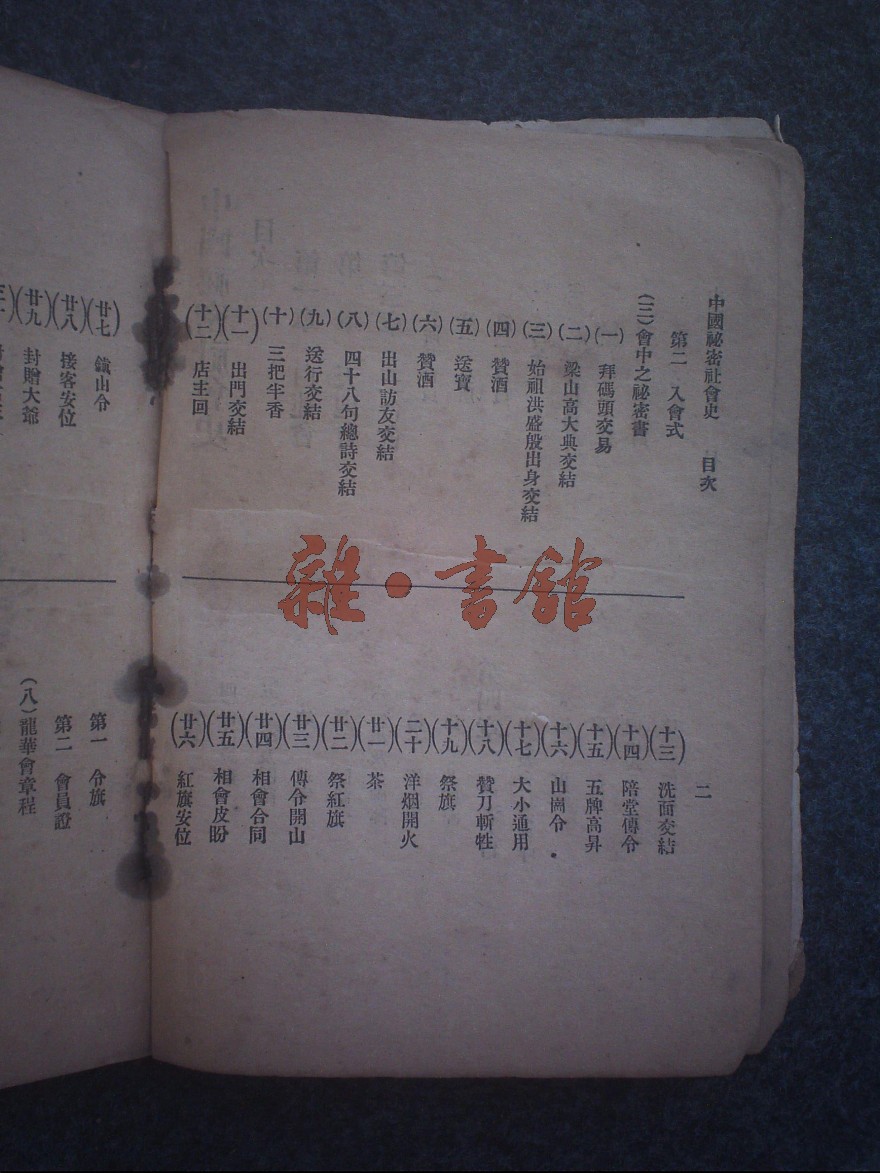 中國祕密社會史　目次
第二　入會式
(三)會中之祕密書
(一)　拜碼頭交易
(二)　梁山高大典交結
(三)　始祖洪盛殷出身交結
(四)　贊酒
(五)　送寶
(六)　贊酒
(七)　出山訪友交結
(八)　四十八句總詩交結
(九)　送行交結
(十)　三把半香
(十一)　出門交結
(十二)　店主回
二
(十三)　洗面交結
(十四)　陪堂傳令
(十五)　五牌高昇
(十六)　山崗令
(十七)　大小通用
(十八)　贊刀斬牲
(十九)　祭旗
(二十)　洋烟開火
(廿一)　茶
(廿二)　祭紅旗
(廿三)　傳令開山
(廿四)　相會合同
(廿五)　相會皮盼
(廿六)　紅旗安位
(廿七)　鎮山令
(廿八)　接客安位
(廿九)　封贈大爺
第一　令旗
第二　會員證
(八)龍華會章程
雜·書館